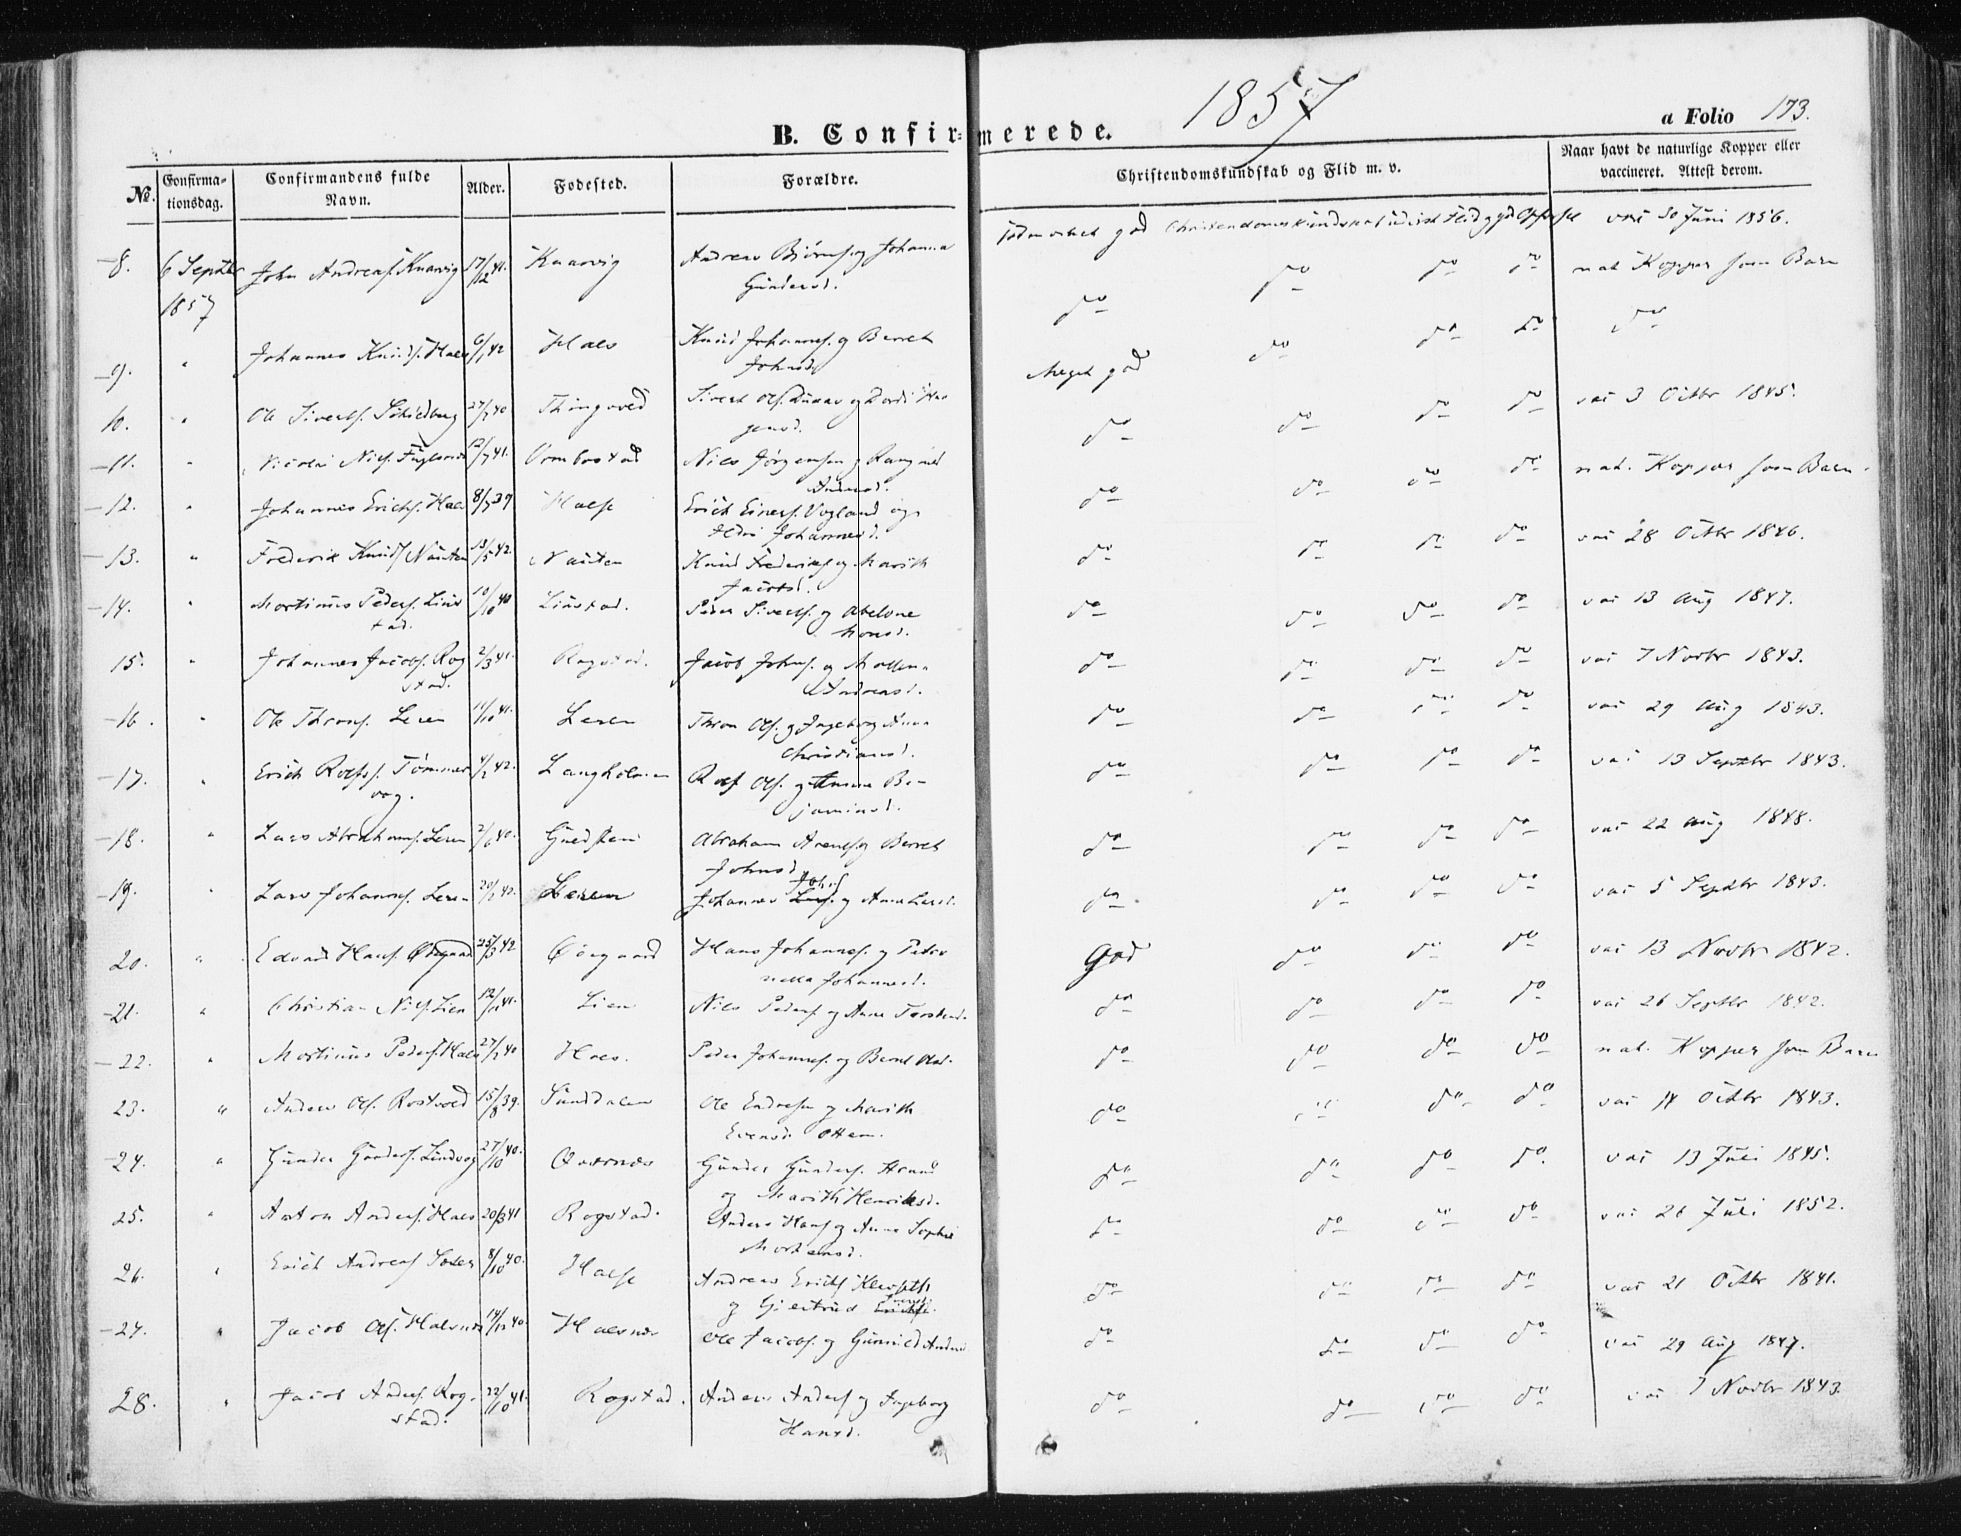 1857
B. Confirmerede.
a Folio 173.
No. Confirmationsdag. Confirmandens fulde Navn. Alder. Fødested. Forældre. Christendomskundskab og Flid m. v. Naar havt de naturlige Kopper eller vaccineret. Attest derom.
8. 6 Septbr John Andreas. Knarvig 17/12 41. Knarvig Andreas Biørns. og Johanna god Christendomskundskab Flid og vac 30 Juni 1856.
1857 Gundersd. do do do do nat Kopper som Barn
9. " Johannes Knuds. Hals 6/1 42 Hals Knud Johanns. og Beret Meget god do do do do
Johnsd.
10. " Ole Siverts. 27/7 40 Thingvold Sivert Ols. og Dordi Haagensd. do do do do vac 3 Octbr 1845.
11. " Nicolai Nils. Fuglsnes 12/7 41. Ormbostad Niels Jørgensen og Rangnild do do do do nat. Kopper som Barn.
12. " Johannes Erichs. Hals 8/7 39 Halse Erich Einers. Vogland og Johannesd. do do do do
13. " Frederik Knuds. Nausten 13/5 42. Nausten Knud Frederiks. og Marith Jacobsd. do do do do vac 28 Octbr 1846.
14. " Martinus Peders. Liustad. 10/10 40 Liustad. Peder Siverts. og Abelone Monsd. do do do do vac 13 Aug 1847.
15. " Johannes Jacobs. Rogstad. 2/3 41. Rogstad. Jacob Johns. og Malena Andreasd. do do do do vac 7 Novbr 1843.
16. " Ole Throns. Leren 11/10 41. Leren Thron Ols. og Ingeborg Anna Christiansd. do do do do vac 29 Aug 1843.
17. " Erich Rolfs. Tømmervog. 4/2 42. Langholmen Rolf Ols. og Anne Benjaminsd. do do do do vac 13 Septbr 1843.
18. " Lars Abrahams. Leren 2/6 40. Abraham Arents. og Berret Johnsd. do do do do vac 22 Aug 1848.
19. " Lars Johanns. Leren 20/2 42. Leren Johannes Johs. og Anne Larsd. do do do do vac 5 Septbr 1843.
20. " Edvard Hans. Ødegaard 25/3 42 Ødegaard Hans Johannes. og Petronella Johannesd. God do do do vac 13 Novbr 1842.
21. " Christian Nils. Lien 12/11 41. Lien Niels Peders. og Anne Torstensd. do do do do vac 26 Septbr 1842.
22. " Martinus Peders. Hals 27/7 40 Hals. Peder Johannes. og Beret Olsd. do do do do nat. Kopper som Barn
23. " Anders Ols. Rostvold 15/8 39. Sunddalen Ole Endresen og Marith Evensd. Ottem. do do do do vac 14 Octbr 1843.
24. " Gunder Gunders. Lindvog 27/10 40. Qvernes Gunder Gunders. og Marith Henriksd. do do do do vac 13 Juli 1845.
25. " Anton Anders. Hals 20/3 41 Rogstad. Anders Hans. og Anne Sophie Mortensd. do do do do vac 26 Juli 1852.
26. " Erich Andreas. 8/10 40. Halse Andreas Erichs. og Giertrud do do do do vac 21 Octbr 1841.
27. " Jacob Ols. Halsnes 14/12 40 Halsnes Ole Jacobs. og Gunnild Andersd. do do do do vac 29 Aug 1847.
28. " Jacob Anders. Rogstad. 22/10 41. Rogstad. Anders Anders. og Ingeborg Hansd. do do do do vac 7 Novbr 1843.